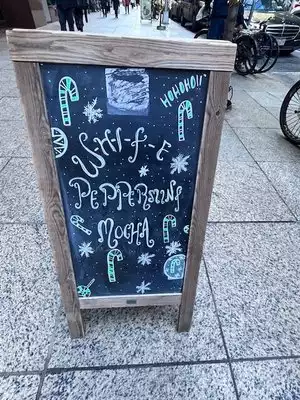 HOHOHO!!
WHI-F-E
PEPPERMINT
MOCHA